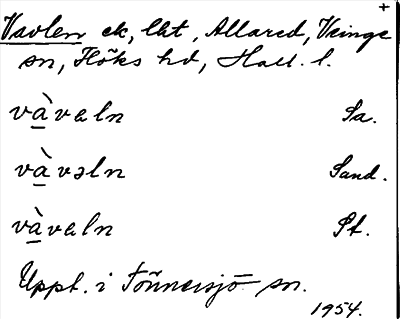 +
Vavlen ek, lht, Allared, Veinge
sn, Höks hd, Hall. l.
vàvaln Sa.
vàvəln Sand.
vàvaln St.
Uppt. i Tönnersjö sn.
1954.